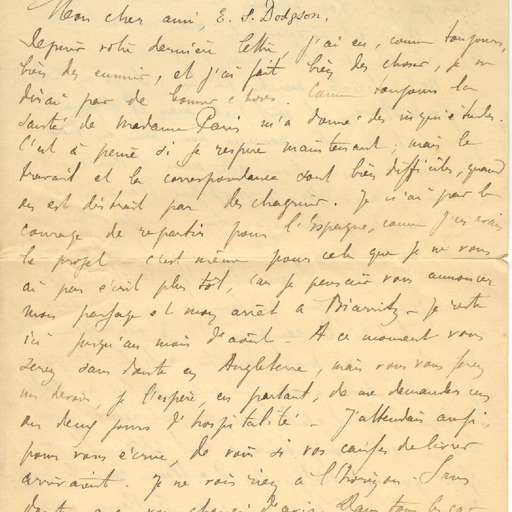 Mon cher ami, E. S. Dodgson,
Depuis votre dernière lettre, j'ai eu, comme toujours,
bien des ennuis, et j'ai fait bien des choses, je ne
dirai pas de bonnes choses. Comme toujours la
santé de Madame Paris m'a donné des inquiétudes.
C'est à peine si je respire maintenant; mais le
travail et la correspondance sont bien difficiles, quand
on est distrait par des chagrins. Je n'ai pas le
courage de repartir pour l'Espagne, comme j'en avais
le projet c'est même pour cela que je ne vous
ai pas écrit plus tôt, car je pensais vous annoncer
mon passage et mon arrêt à Biarritz - je reste
ici jusqu'au mois d'août. A ce moment vous
serez sans doute en Angleterre, mais vous vous ferez
un devoir, je l'espère, en partant, de me demander un
ou deux jours d'hospitalité - J'attendais aussi,
pour vous écrire, de voir si vos caisses de livres
arrivaient. Je ne vois rien à l'horizon - Sans
doute vous changé d'avis. Dans tous les cas